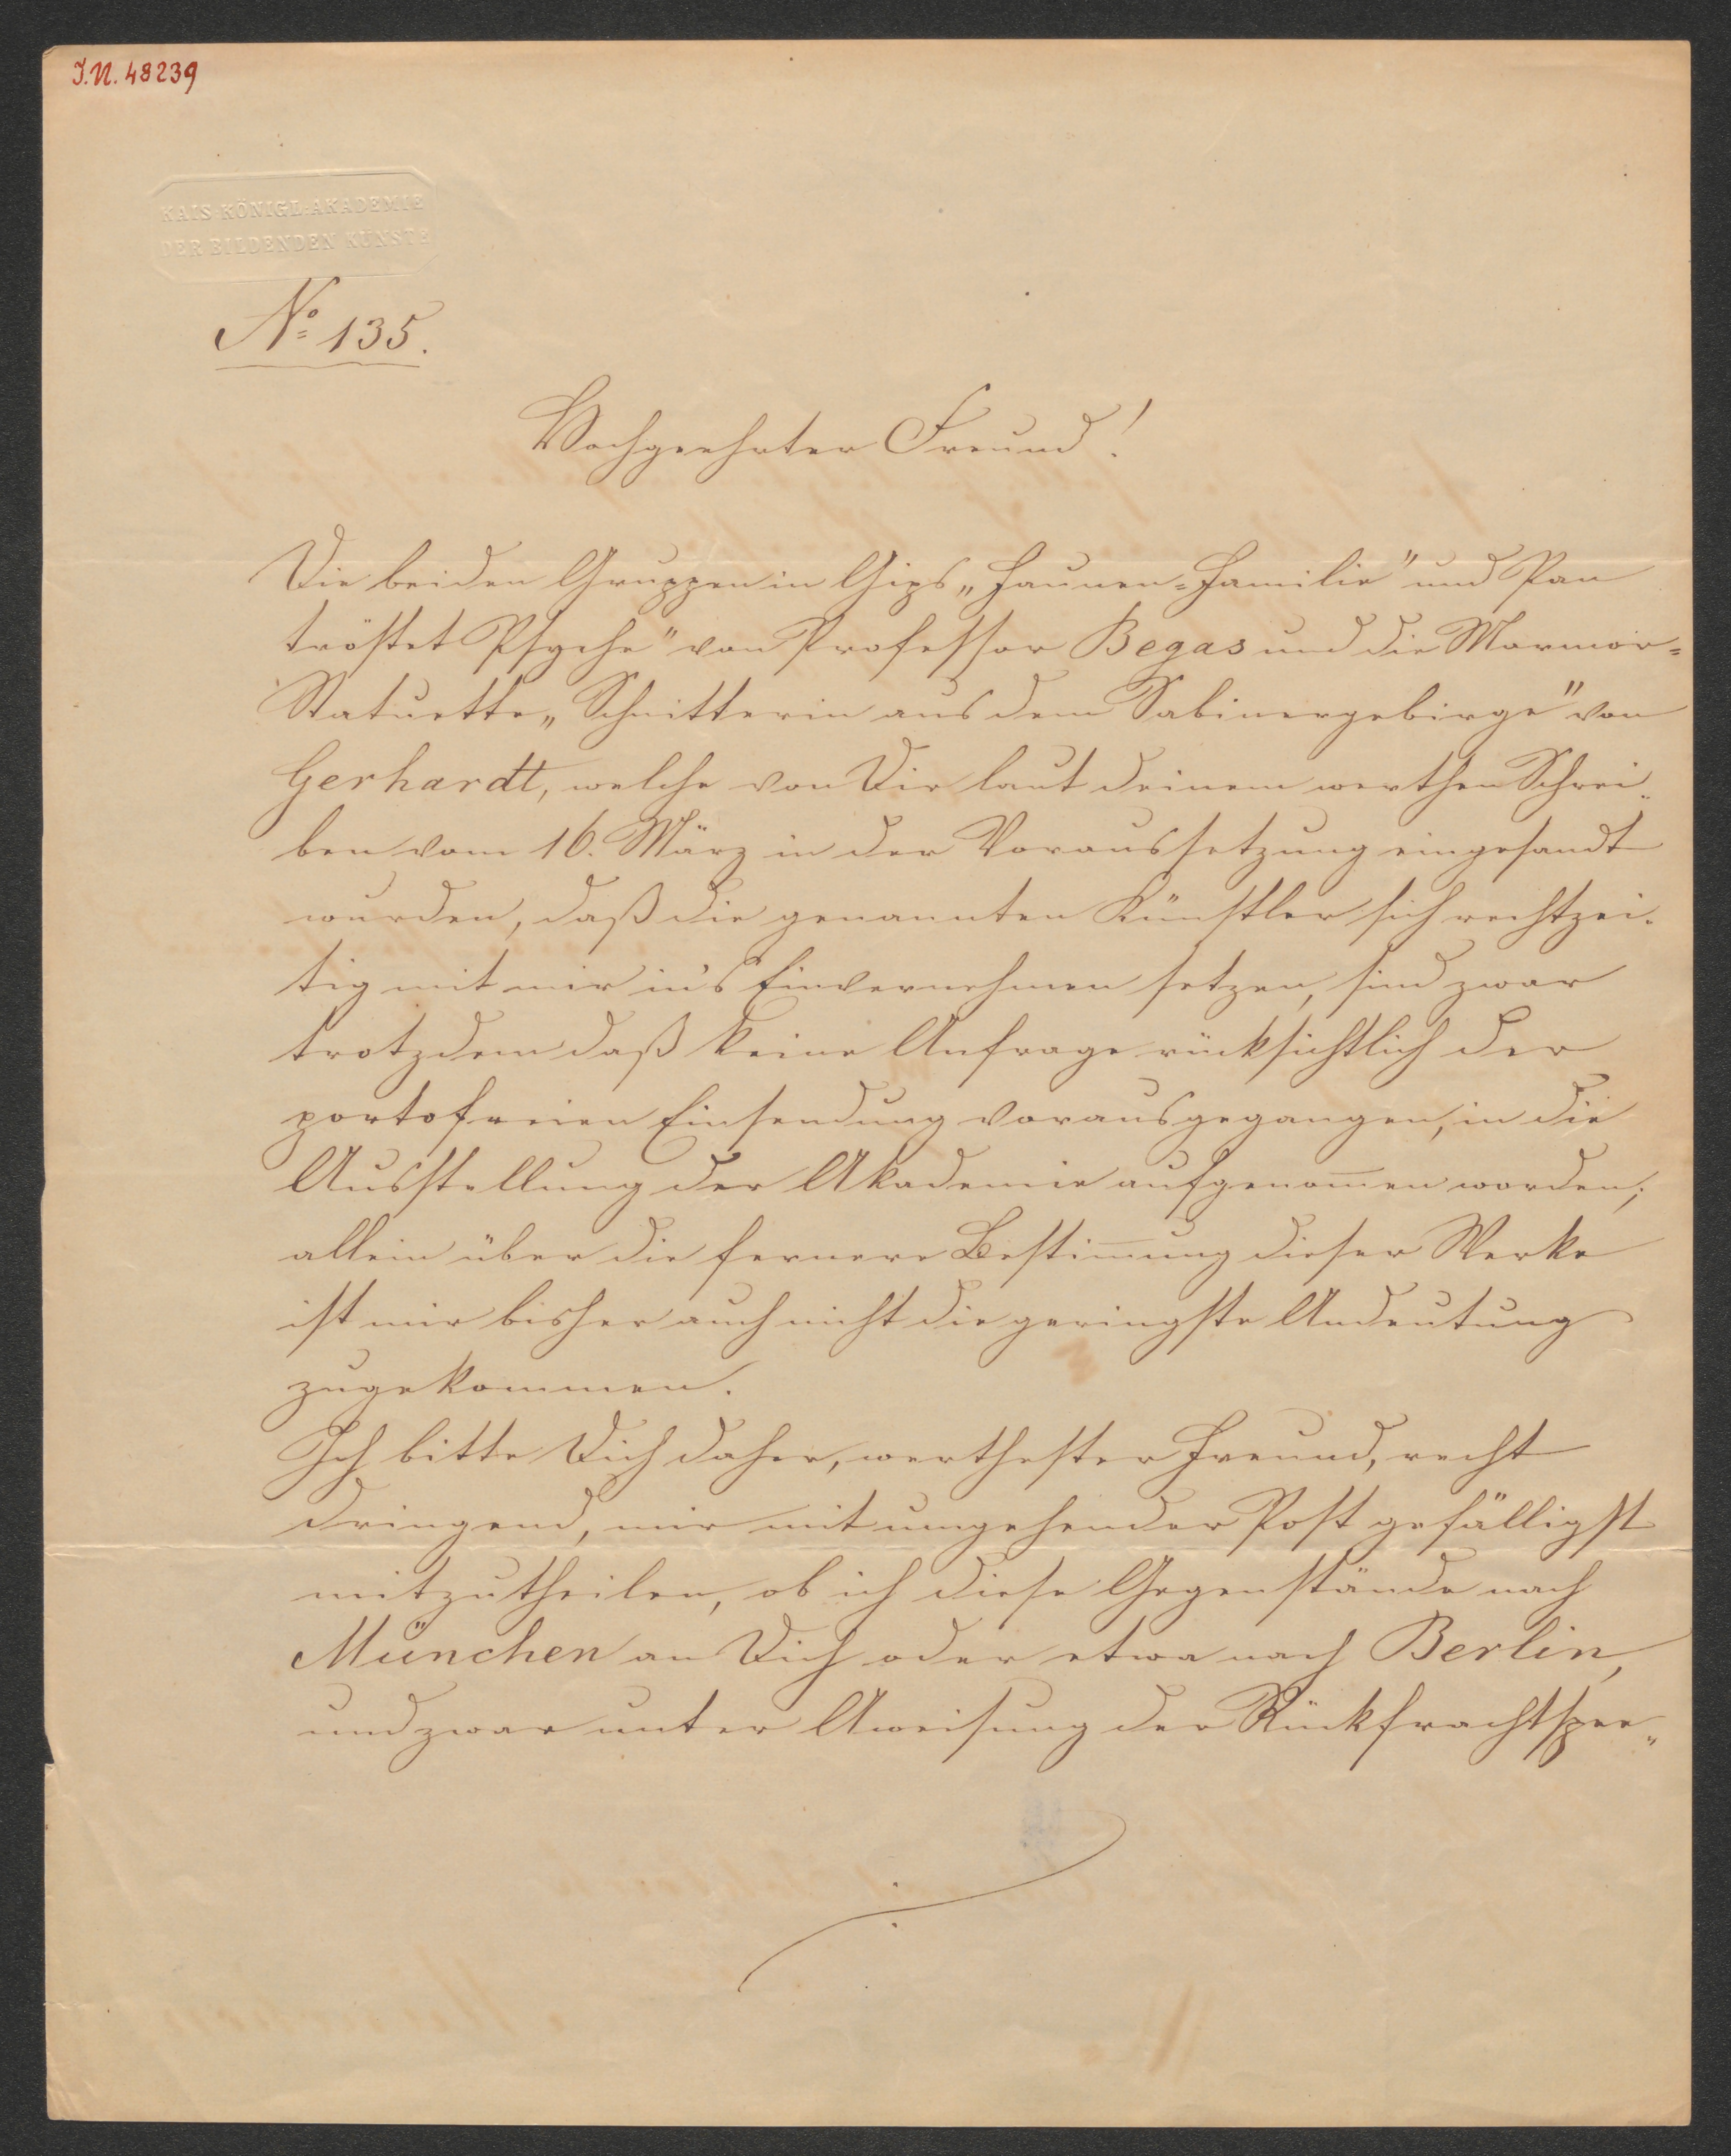 I.N. 48239
KAIS. KÖNIGL. AKADEMIE
DER BILDENDEN KÜNSTE
No 135.
Hochgeehrter Freund!
Die beiden Gruppen in Gips „Faunen-Familie" und Pan
tröstet Psyche" von Professor Begas und die Marmor=
Statuette „Schnitterin aus dem Sabinergebirge" von
Gerhardt, welche von Dir laut deinem werthen Schrei-
ben vom 16. März in der Voraussetzung eingesandt
wurden, daß die genannten Künstler sich rechtzei-
tig mit mir in's Einvernehmen setzen, sind zwar
trotzdem daß keine Anfrage rücksichtlich der
portofreien Einsendung vorausgegangen, in die
Ausstellung der Akademie aufgenom̅en worden;
allein über die fernere Bestim̅ung dieser Werke
ist mir bisher auch nicht die geringste Andeutung
zugekommen.
Ich bitte Dich daher, werthester Freund, recht
dringend, mir mit umgehender Post gefälligst
mitzutheilen, ob ich diese Gegenstände nach
München an Dich oder etwa nach Berlin,
und zwar unter Aweisung der Rückfrachtspe-